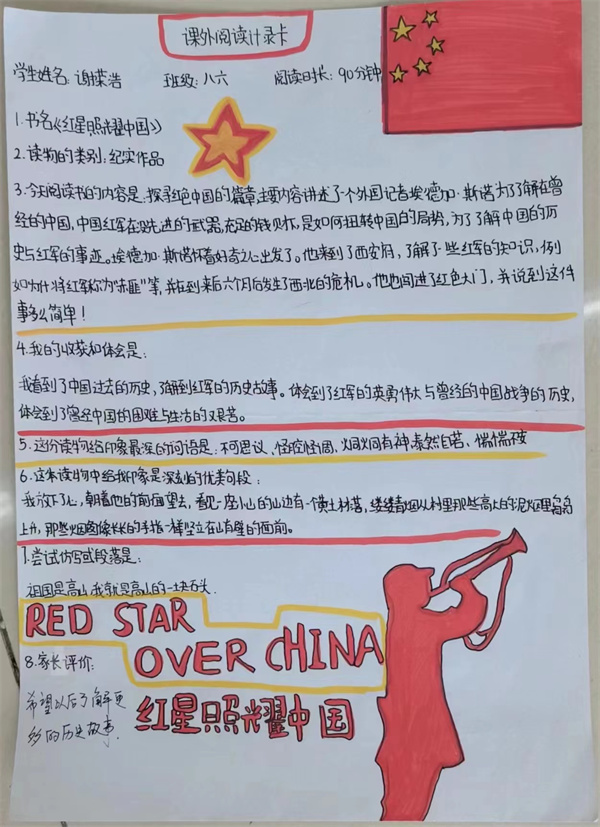 课外阅读计录卡
学生姓名: 谢荣浩 班级: 八六 阅读时长: 90分钟
1.书名《红星照耀中国》
2.读物的类别: 纪实作品
3.今天阅读书的内容是:探寻红色中国的篇章,主要内容讲述了一个外国记者埃德加·斯诺为了了解在曾
经的中国,中国红军在没先进的武器,充足的钱财下,是如何扭转中国的局势,为了了解中国的历
史与红军的事迹。埃德加·斯诺怀着好奇之心出发了。他来到了西安府,了解了一些红军的知识,例
如为什将红军称为“赤匪”等,并在到来后六个月后发生了西北的危机。他也闯进了红色大门,并说到这件
事多么简单!
4.我的收获和体会是:
我看到了中国过去的历史,了解到红军的历史故事。体会到了红军的英勇伟大与曾经的中国战争的历史,
体会到了曾经中国的困难与生活的艰苦。
5.这份读物给印象最深的词语是:不可思议、怪腔怪调、炯炯有神、泰然自若、惴惴不安
6.这本读物中给我印象是深刻的优美句段:
我放下了心,朝着他的前面望去,看见一座小山的山边有一横土村落,缕缕青烟从村里那些高大的泥烟囱里袅袅
上升,那些烟囱像长长的手指一样竖立在山壁的面前。
7.尝试仿写或段落是:
祖国是高山,我就是高山的一块石头.
RED STAR
OVER CHINA
8.家长评价:
希望以后了解更
多的历史故事.
红星照耀中国